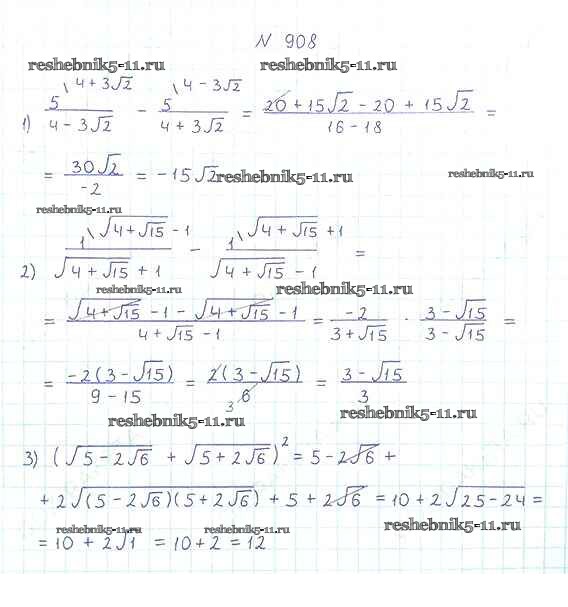 N 908
reshebnik5-11.ru reshebnik5-11.ru
1) 5\4+3√2 / (4-3√2) - 5\4-3√2 / (4+3√2) = (20+15√2-20+15√2) / (16-18) =
= 30√2 / -2 = -15√2 reshebnik5-11.ru reshebnik5-11.ru
reshebnik5-11.ru
2) 1\√(4+√15)-1 / (√(4+√15)+1) - 1\√(4+√15)+1 / (√(4+√15)-1) =
reshebnik5-11.ru reshebnik5-11.ru
= (√(4+√15)-1-√(4+√15)-1) / (4+√15-1) = -2 / (3+√15) · (3-√15) / (3-√15) =
= -2(3-√15) / (9-15) = 2(3-√15) / 6 3 = (3-√15) / 3
reshebnik5-11.ru reshebnik5-11.ru
3) (√(5-2√6) + √(5+2√6))² = 5-2√6 +
+ 2√((5-2√6)(5+2√6)) + 5+2√6 = 10+2√(25-24) =
reshebnik5-11.ru reshebnik5-11.ru reshebnik5-11.ru
= 10+2√1 = 10+2 = 12